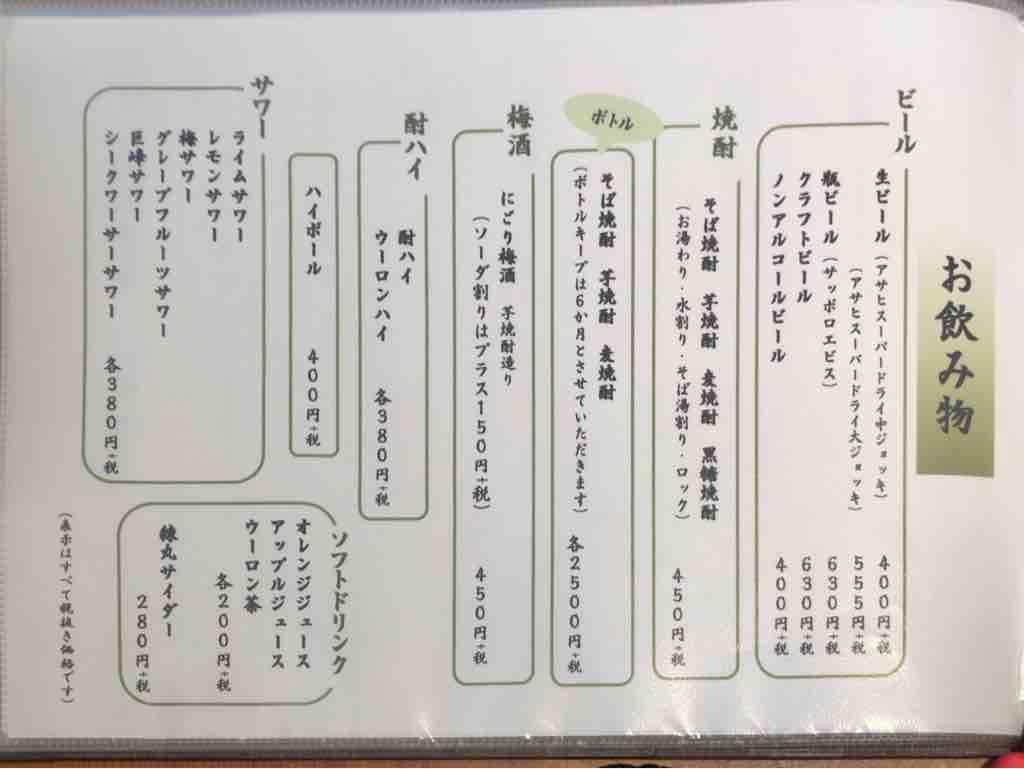 お飲み物
ビール
生ビール (アサヒスーパードライ中ジョッキ) 400円+税
(アサヒスーパードライ大ジョッキ) 555円+税
瓶ビール (サッポロエビス) 630円+税
クラフトビール 630円+税
ノンアルコールビール 400円+税
焼酎
そば焼酎 芋焼酎 麦焼酎 黒糖焼酎
(お湯わり・水割り・そば湯割り・ロック) 450円+税
ボトル
そば焼酎 芋焼酎 麦焼酎
(ボトルキープは6か月とさせていただきます) 各2500円+税
梅酒
にごり梅酒 芋焼酎造り
(ソーダ割りはプラス150円+税) 450円+税
酎ハイ
酎ハイ
ウーロンハイ 各380円+税
ハイボール 400円+税
サワー
ライムサワー
レモンサワー
梅サワー
グレープフルーツサワー
巨峰サワー
シークワーサーサワー 各380円+税
ソフトドリンク
オレンジジュース
アップルジュース
ウーロン茶
各200円+税
練丸サイダー
280円+税
(表示はすべて税抜き価格です)